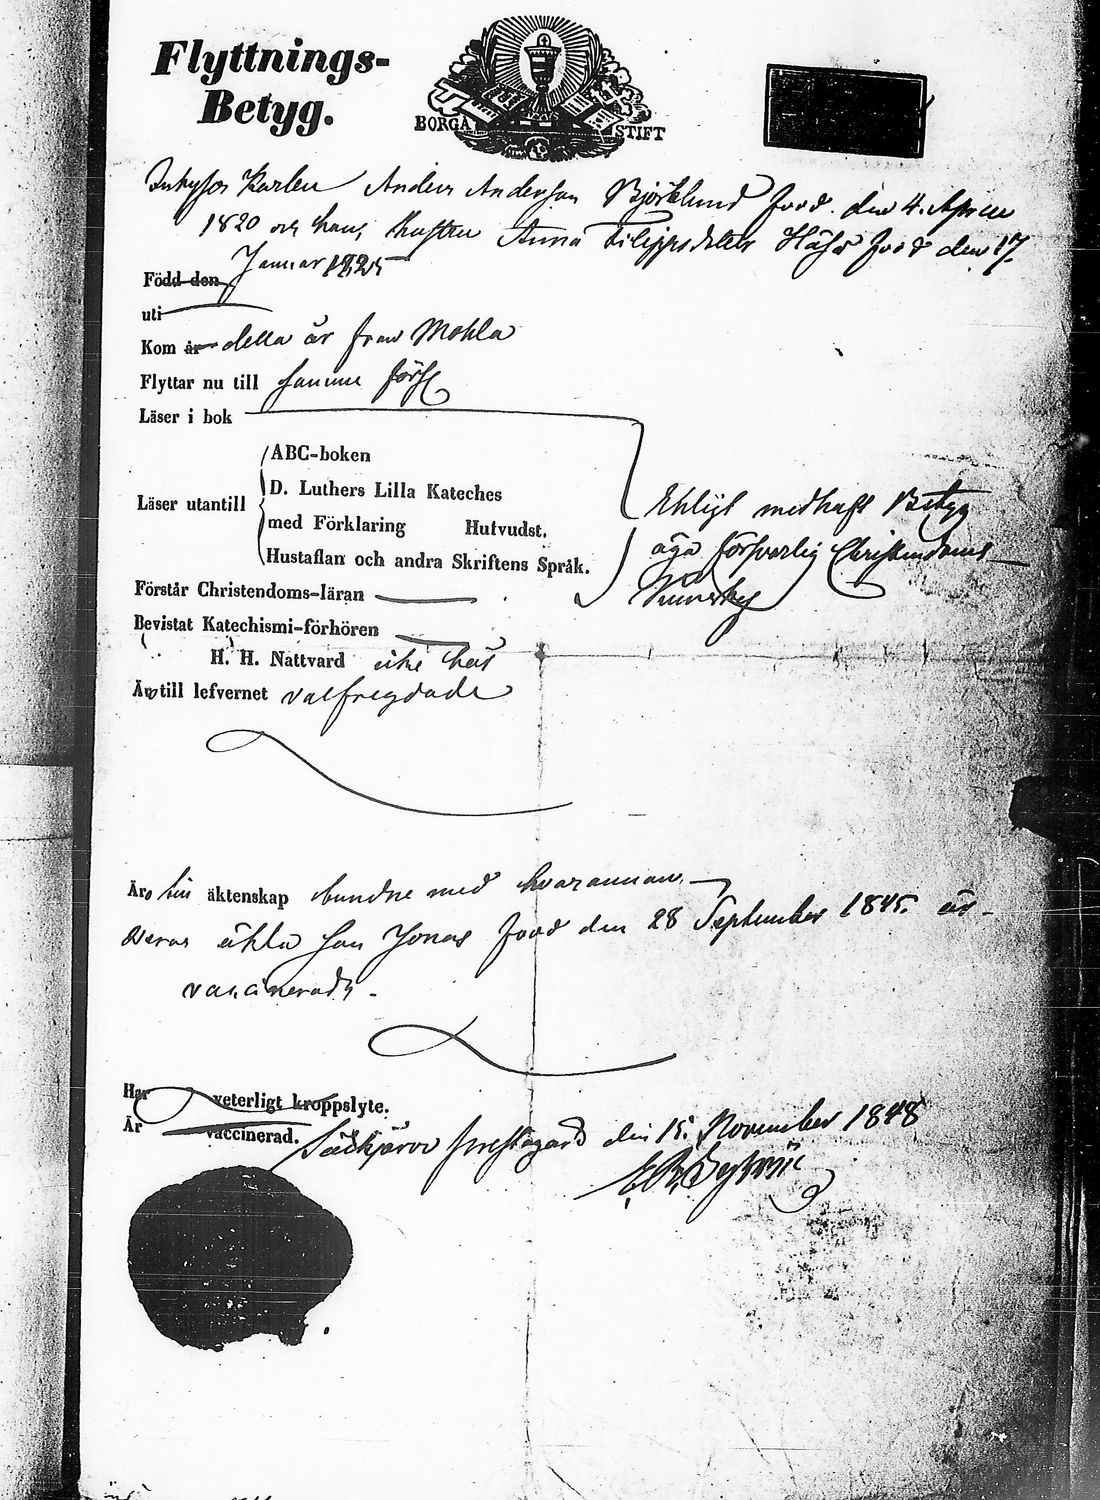 Flyttnings-
Betyg.
BORGÅ STIFT
Inhyses Karlen Anders Andersson Björklund född den 4. April
1820 och hans hustru Anna Filippsdotter född den 17
Januar 1825
Född den
uti
Kom år detta år från Mohla
Flyttar nu till samma förs
Läser i bok
Läser utantill
ABC-boken
D. Luthers Lilla Kateches
med Förklaring Hufvudst.
Hustaflan och andra Skriftens Språk.
Enligt medhaft Betyg
äga försvarlig Christendoms
Förstår Christendoms-läran
Bevistat Katechismi-förhören
H. H. Nattvard icke här
Är till lefvernet välfregdade
Äro uti äktenskap bundne med hvarannan.
Deras äkta son Jonas född den 28 September 1845. är
vaccinerad
Har veterligt kroppslyte.
Är vaccinerad.
Säckjärvi prestgård den 15. November 1848